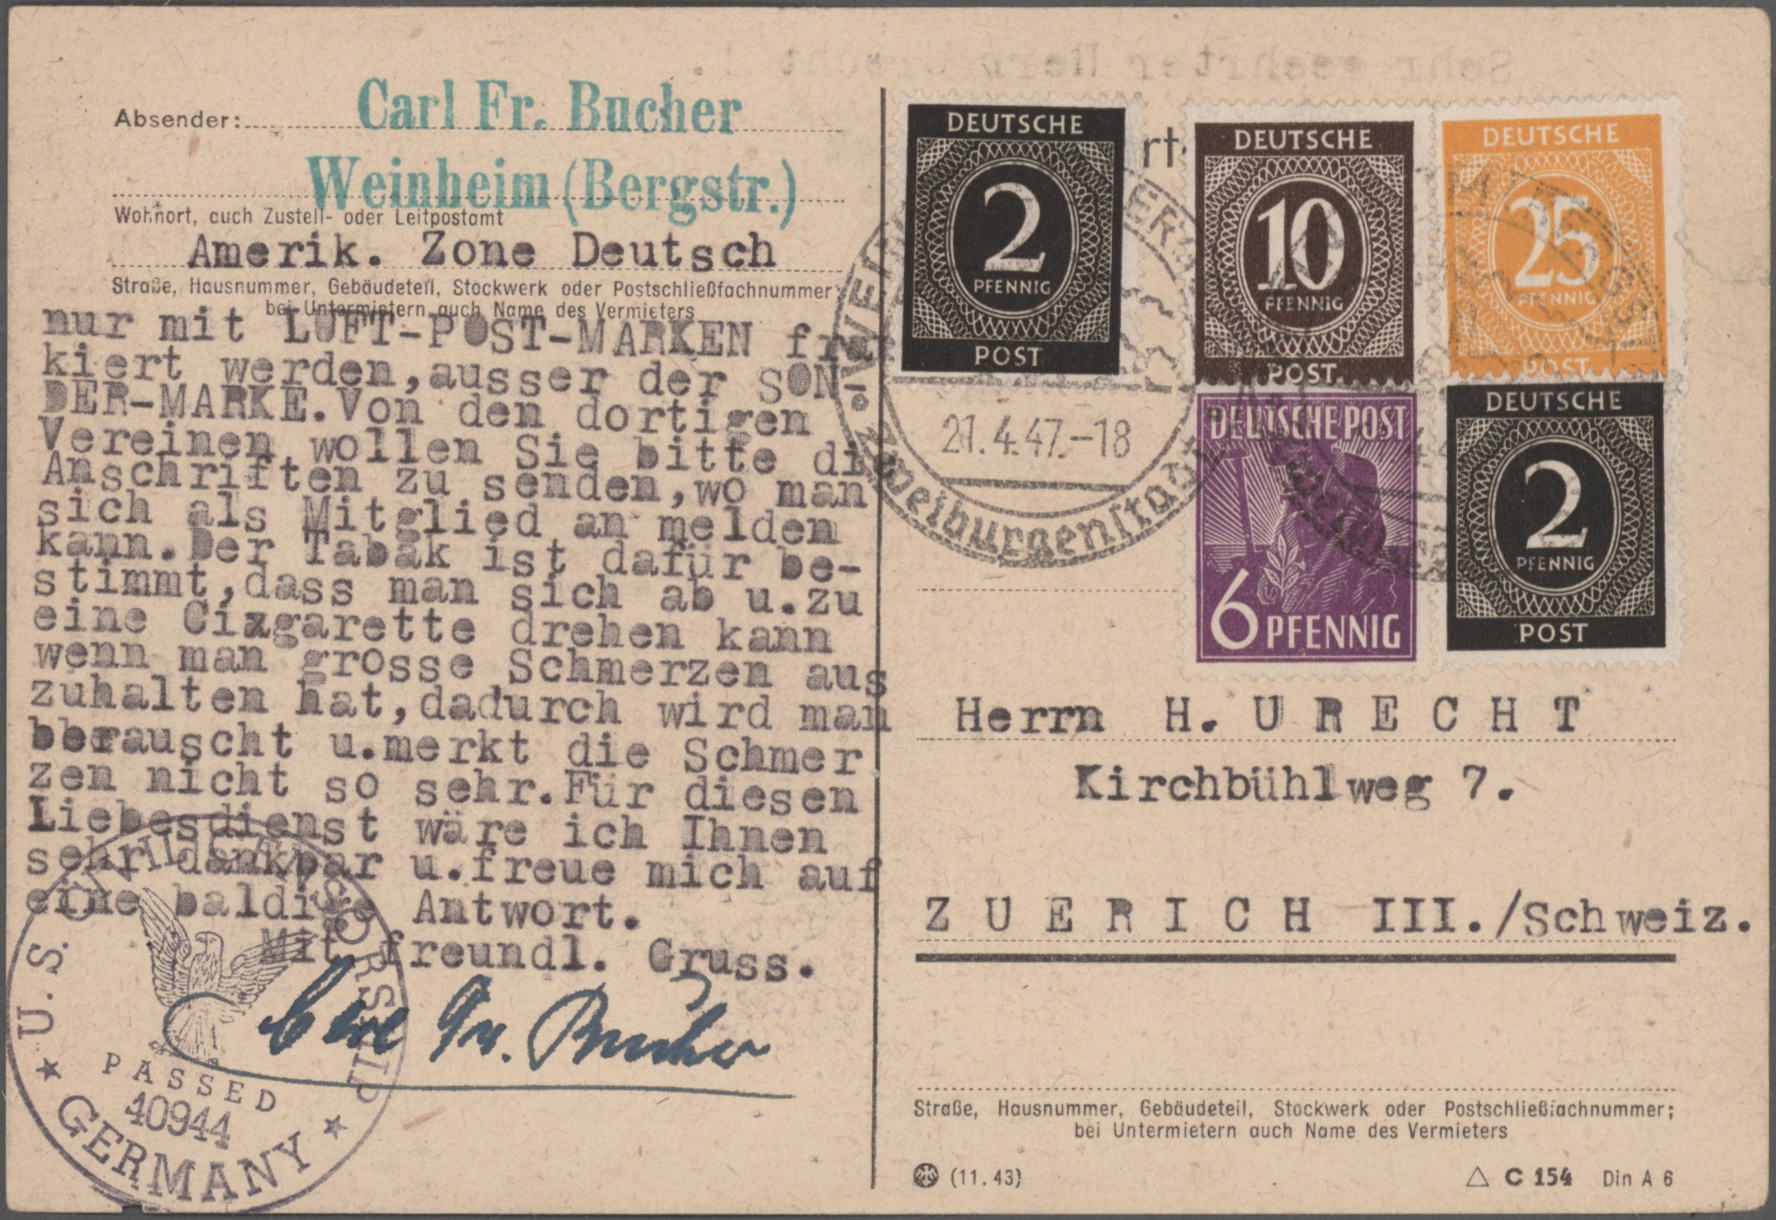 Absender:
Carl Fr. Bucher
Weinheim (Bergstr.)
Wohnort, auch Zustell- oder Leitpostamt
Amerik. Zone Deutsch
Straße, Hausnummer, Gebäudeteil, Stockwerk oder Postschließfachnummer
bei Untermietern auch Name des Vermieters
nur mit LUFT-POST-MARKEN fra
kiert werden,ausser der SON-
DER-MARKE.Von den dortigen
Vereinen wollen Sie bitte die
Anschriften zu senden,wo man
sich als Mitglied an melden
kann.Der Tabak ist dafür be-
stimmt,dass man sich ab u.zu
eine Cizgarette drehen kann
wenn man grosse Schmerzen aus
zuhalten hat,dadurch wird man
berauscht u.merkt die Schmer
zen nicht so sehr.Für diesen
Liebesdienst wäre ich Ihnen
sehr dankbar u.freue mich auf
eine baldige Antwort.
Mit freundl. Gruss.
Carl Fr. Bucher
U.S. CIVIL CENSORSHIP
PASSED
40944
GERMANY
DEUTSCHE
2
PFENNIG
POST
DEUTSCHE
10
PFENNIG
POST
DEUTSCHE
25
PFENNIG
POST
DEUTSCHE POST
6 PFENNIG
DEUTSCHE
2
PFENNIG
POST
21.4.47.-18
Zweiburgenstadt
Herrn H. U R E C H T
Kirchbühlweg 7.
Z U E R I C H III./Schweiz.
Straße, Hausnummer, Gebäudeteil, Stockwerk oder Postschließfachnummer;
bei Untermietern auch Name des Vermieters
(11. 43)
C 154 Din A 6